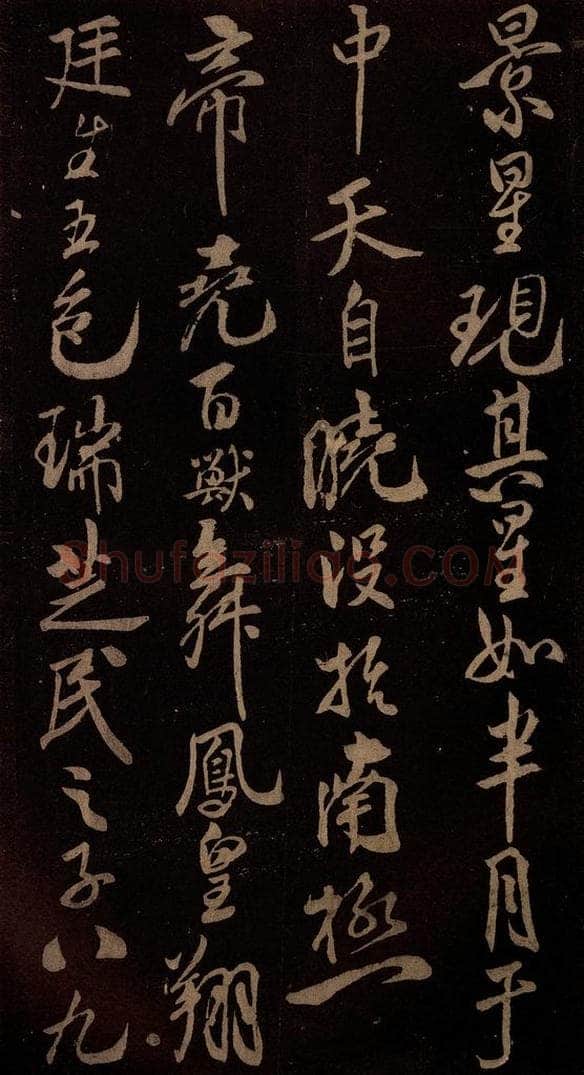 景星現其星如半月于
中天自曉没於南極
帝堯百獸舞鳳皇翔
廷生五色瑞芝民之子八九
Shufaziliao.COM